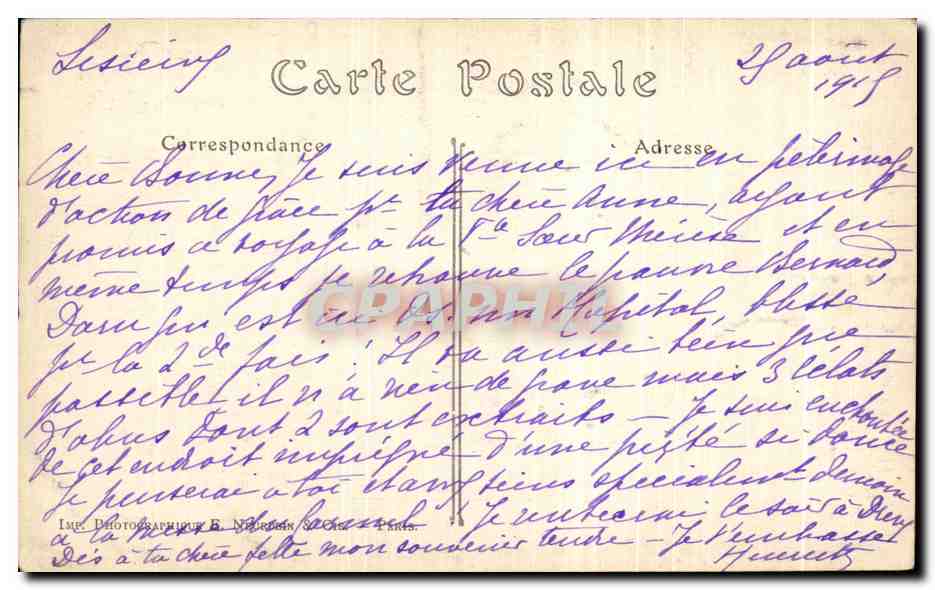 Lisieux
Carte Postale
29 août
1915
Correspondance
Adresse
Chère Je suis venue ici en pèlerinage
d'action de grâce pr ta chère Anne, ayant
promis ce voyage à la Sœur Thérèse et en
même temps je retrouve le pauvre Bernard
Daru qui est ici ds. un Hôpital, blessé
pr la 2de fois ! Il va aussi bien que
possible il n'a rien de grave mais 3 éclats
d'obus dont 2 sont extraits — Je suis enchantée
de cet endroit imprégné d'une piété si douce
Je penserai à toi et aux tiens spécialemt demain
CPAPHIL
Imp. Photographique E. Neurdein & Cie. — Paris.
à la messe Je rentrerai le soir à
Dis à ta chère fille mon souvenir tendre — Je t'embrasse